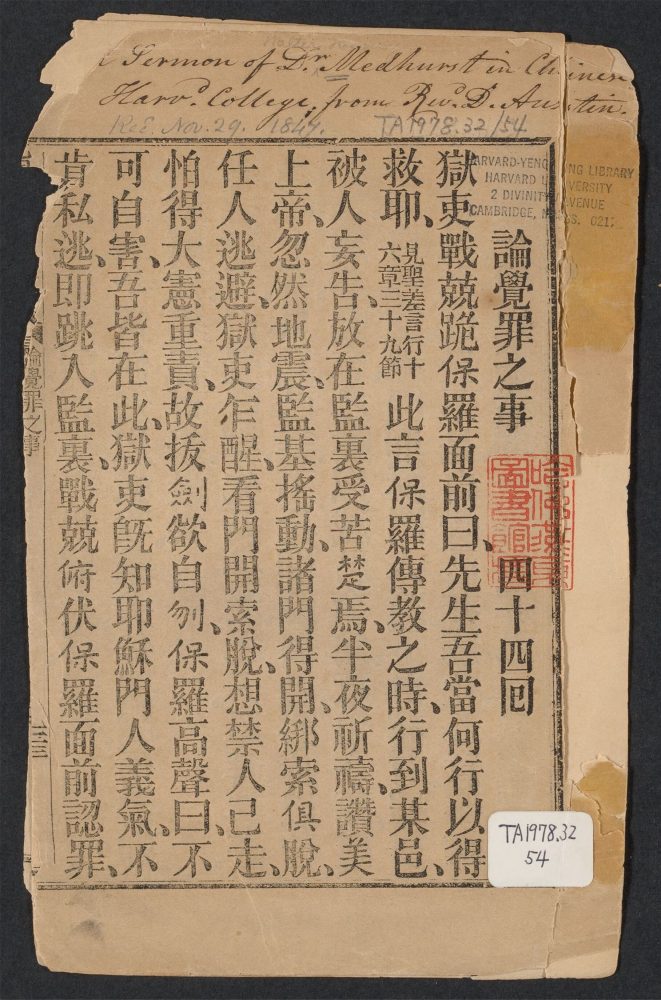 Sermon of Dr. Medhurst in Chinese
Harvd. College, from Revd. D. Austin.
Rec. Nov. 29. 1847.
TA1978.32/54
HARVARD-YENCHING LIBRARY
HARVARD UNIVERSITY
2 DIVINITY AVENUE
CAMBRIDGE, MASS. 0213
論覺罪之事 四十四回
獄吏戰兢跪保羅面前曰、先生吾當何行以得
救耶、見聖差言行十六章三十九節 此言保羅傳教之時、行到某邑、
被人妄告、放在監裏受苦楚焉、半夜祈禱、讚美
上帝、忽然地震、監基搖動、諸門得開、綁索俱脫、
任人逃避、獄吏乍醒、看門開索脫、想禁人已走、
怕得大憲重責、故拔劍欲自刎、保羅高聲曰、不
可自害、吾皆在此、獄吏旣知耶穌門人義氣、不
肯私逃、卽跳入監裏、戰兢俯伏保羅面前認罪、
論覺罪之事
哈佛燕京
圖書館
TA1978.32
54